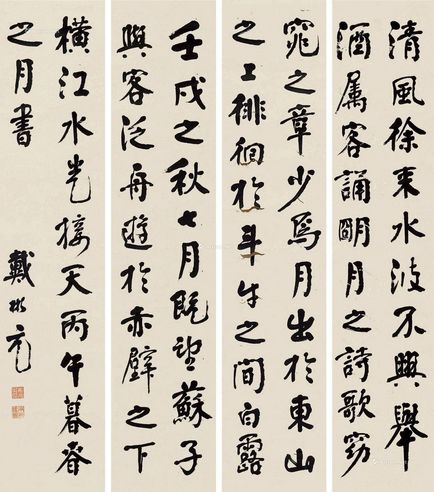 清風徐来水波不興舉
酒属客誦明月之詩歌窈
窕之章少焉月出於東山
之上徘徊於斗牛之間白露
壬戌之秋七月既望蘇子
與客泛舟遊於赤壁之下
橫江水光接天丙午暮春
之月書
戴彬元